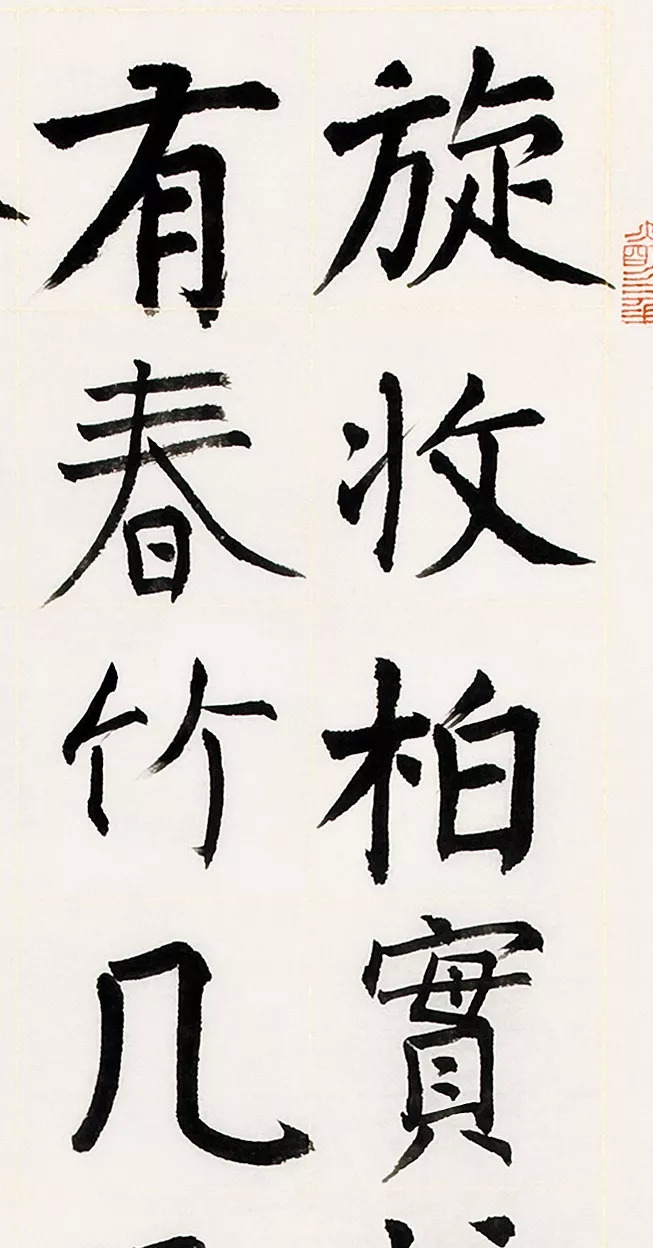 旋收柏實
有春竹几